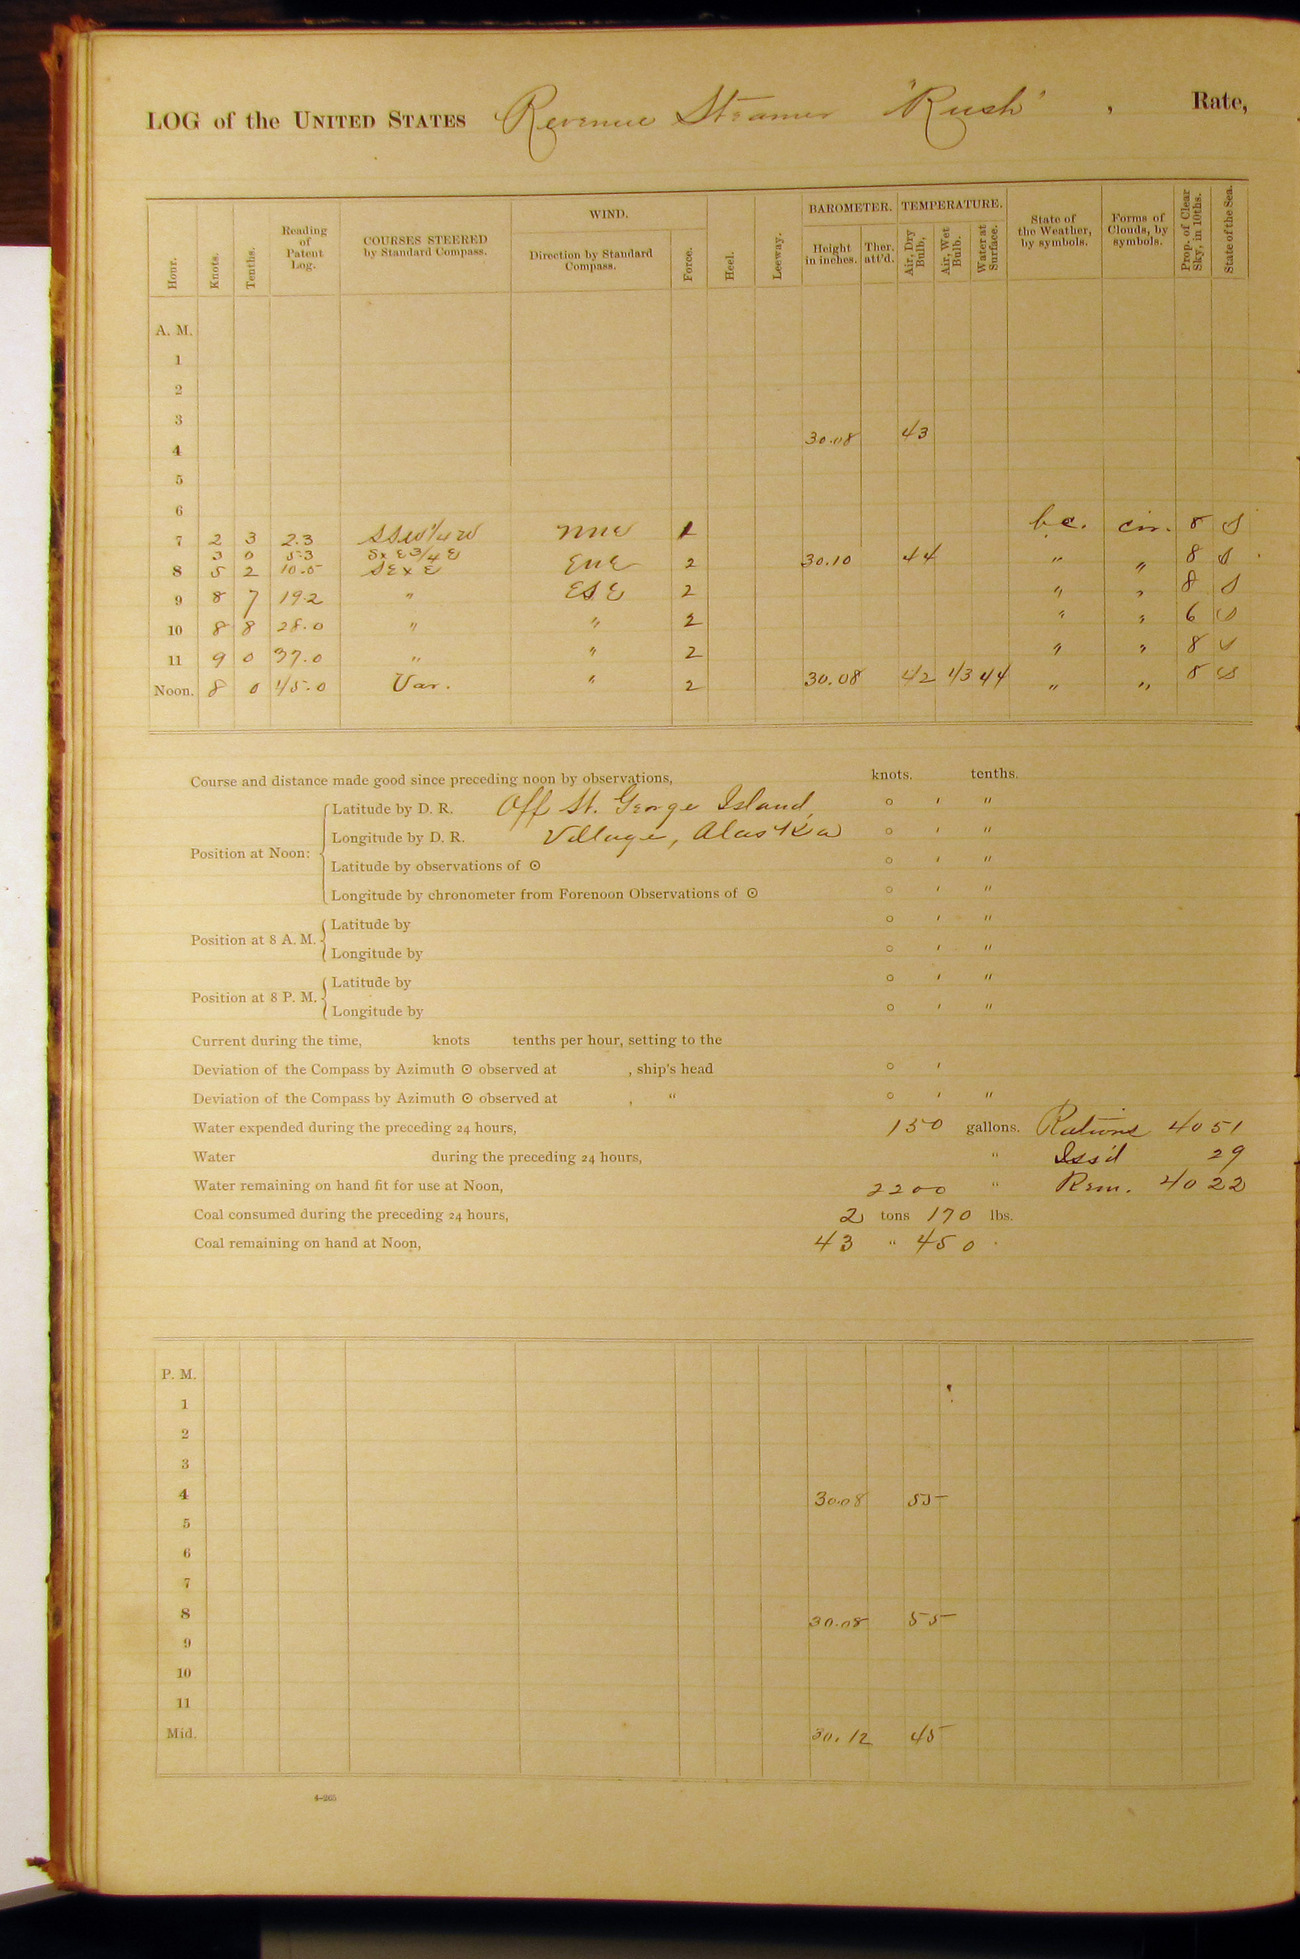 LOG of the UNITED STATES Revenue Steamer "Rush" , Rate,
Hour. Knots. Tenths. Reading of Patent Log. COURSES STEERED by Standard Compass. WIND. Direction by Standard Compass. Force. Heel. Leeway. BAROMETER. Height in inches. Ther. att'd. TEMPERATURE. Air, Dry Bulb, Air, Wet Bulb. Water at Surface. State of the Weather, by symbols. Forms of Clouds, by symbols. Prop. of Clear Sky, in 10ths. State of the Sea.
A. M.
1
2
3
4 30.08 43
5
6
7 2 3 2.3 SSW 1/4 W NNE 1 b.c. cir. 8 S
3 0 5.3 SxE 3/4 E
8 5 2 10.5 SExE ENE 2 30.10 44 " " 8 S
9 8 7 19.2 " ESE 2 " " 8 S
10 8 8 28.0 " " 2 " " 6 S
11 9 0 37.0 " " 2 " " 8 S
Noon. 8 0 45.0 Var. " 2 30.08 42 43 44 " " 8 S
Course and distance made good since preceding noon by observations, knots. tenths.
Position at Noon: Latitude by D. R. Off St. George Island, ° ′ ″
Longitude by D. R. Village, Alaska ° ′ ″
Latitude by observations of ☉ ° ′ ″
Longitude by chronometer from Forenoon Observations of ☉ ° ′ ″
Position at 8 A. M. Latitude by ° ′ ″
Longitude by ° ′ ″
Position at 8 P. M. Latitude by ° ′ ″
Longitude by ° ′ ″
Current during the time, knots tenths per hour, setting to the
Deviation of the Compass by Azimuth ☉ observed at , ship's head ° ′
Deviation of the Compass by Azimuth ☉ observed at , " ° ′ ″
Water expended during the preceding 24 hours, 150 gallons. Rations 4051
Water during the preceding 24 hours, " Iss'd 29
Water remaining on hand fit for use at Noon, 2200 " Rem. 4022
Coal consumed during the preceding 24 hours, 2 tons 170 lbs.
Coal remaining on hand at Noon, 43 " 450
P. M.
1
2
3
4 30.08 55
5
6
7
8 30.08 55
9
10
11
Mid. 30.12 45
4-265